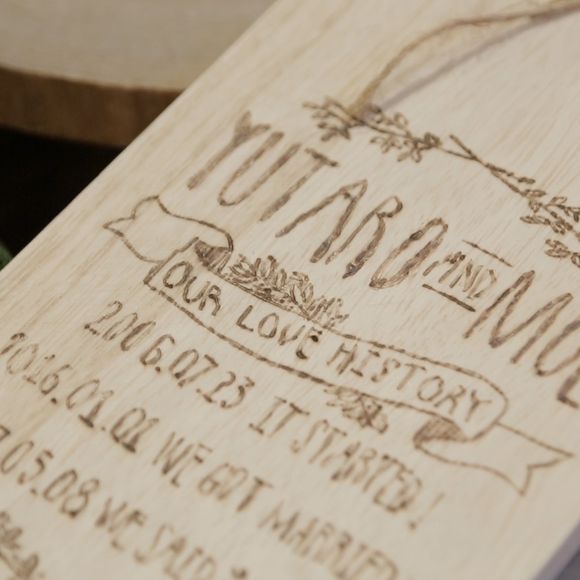 YUTARO AND
OUR LOVE HISTORY
2006.07.23 IT STARTED!
2016.01.01 WE GOT MARRIED
7.05.08 WE SAID